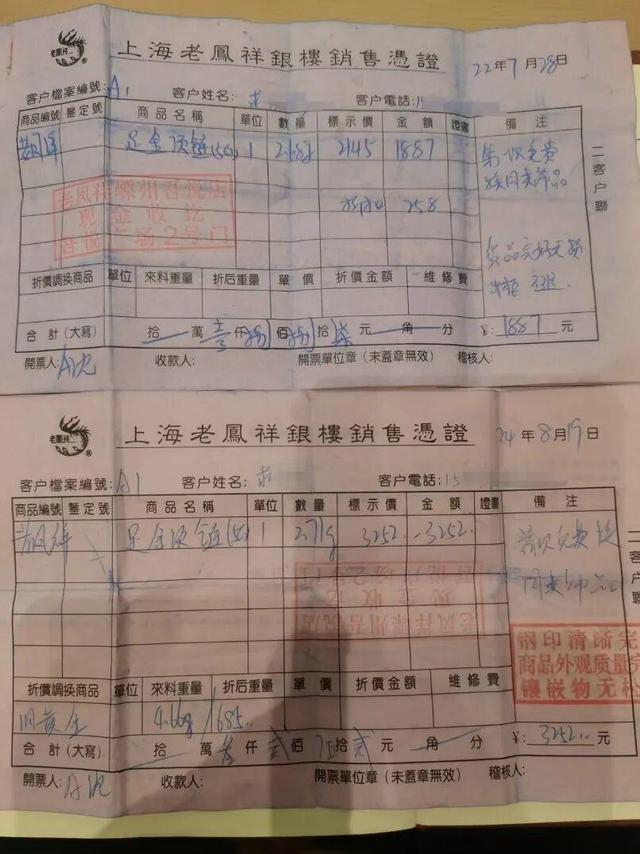 老鳳祥 上海老鳳祥銀樓銷售憑證 22年7月28日
客户檔案編號:A1 客户姓名: 客户電話:1
商品編號 鑒定號 商品名稱 單位 數量 標示價 金額 證書 備注
足金 1 2.68g 2145 1887
258
老凤祥嵊州吾悦店
现金收讫
吾悦广场2号门
二客户聯
折價調换商品 單位 來料重量 折后重量 單價 折價金額 維修費
合計(大寫) 拾 萬 壹仟 捌佰 捌拾 柒元 角 分 ¥:1887元
開票人: 收款人: 開票單位章(未蓋章無效) 稽核人:
老鳳祥 上海老鳳祥銀樓銷售憑證 24年8月19日
客户檔案編號:A1 客户姓名: 客户電話:15
商品編號 鑒定號 商品名稱 單位 數量 標示價 金額 證書 備注
老凤祥 足金 1 2.71g 3252 3252
老凤祥嵊州吾悦店
现金收讫
吾悦广场2号门
二客户聯
钢印清晰完
商品外观质量完
镶嵌物无松
折價調换商品 單位 來料重量 折后重量 單價 折價金額 維修費
旧黄金 4.66g 1685
合計(大寫) 拾 萬 叁仟 贰佰 伍拾 贰元 角 分 ¥:3252元
開票人: 收款人: 開票單位章(未蓋章無效) 稽核人: